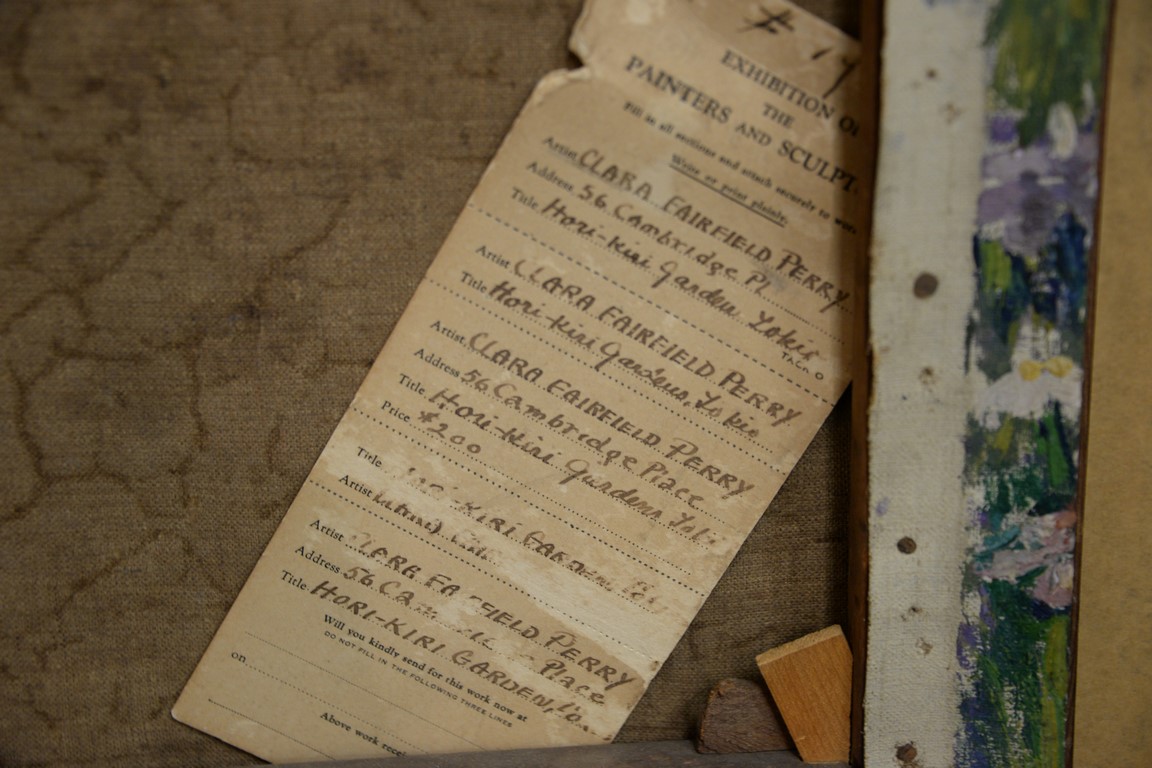 # 17
EXHIBITION OF
THE
PAINTERS AND SCULPT
Fill in all sections and attach securely to work
Write or print plainly.
Artist CLARA FAIRFIELD PERRY
Address 56 Cambridge Pl
Title Hori-kiri Garden Tokio
TACK O
Artist CLARA FAIRFIELD PERRY
Title Hori-kiri Gardens, Tokio
Artist CLARA FAIRFIELD PERRY
Address 56 Cambridge Place
Title Hori-Kiri Gardens Tokio
Price $200
Title KIRI GARDEN
Artist
Artist CLARA FAIRFIELD PERRY
Address 56 Place
Title HORI-KIRI GARDEN,
Will you kindly send for this work now at
DO NOT FILL IN THE FOLLOWING THREE LINES
on
Above work